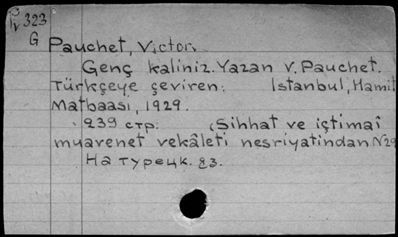 323
G
Pauchet, Victor.
Genç kaliniz. Yazan V. Pauchet.
Türkçeye çeviren: Istanbul, Hamit
Matbaasi, 1929.
239 стр. (Sihhat ve içtimaî
muavenet vekâleti nesriyatindan N29
На турецк. яз.